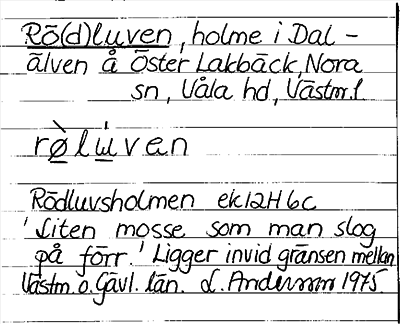 Rö(d)luven, holme i Dal-
älven å Öster Lakbäck, Nora
sn, Våla hd, Västm.l
rø̀lu̇ven
Rödluvsholmen ek12H6c
'Liten mosse som man slog
på förr.' Ligger invid gränsen mellan
Västm. o. Gävl. län. L. Andersson 1975